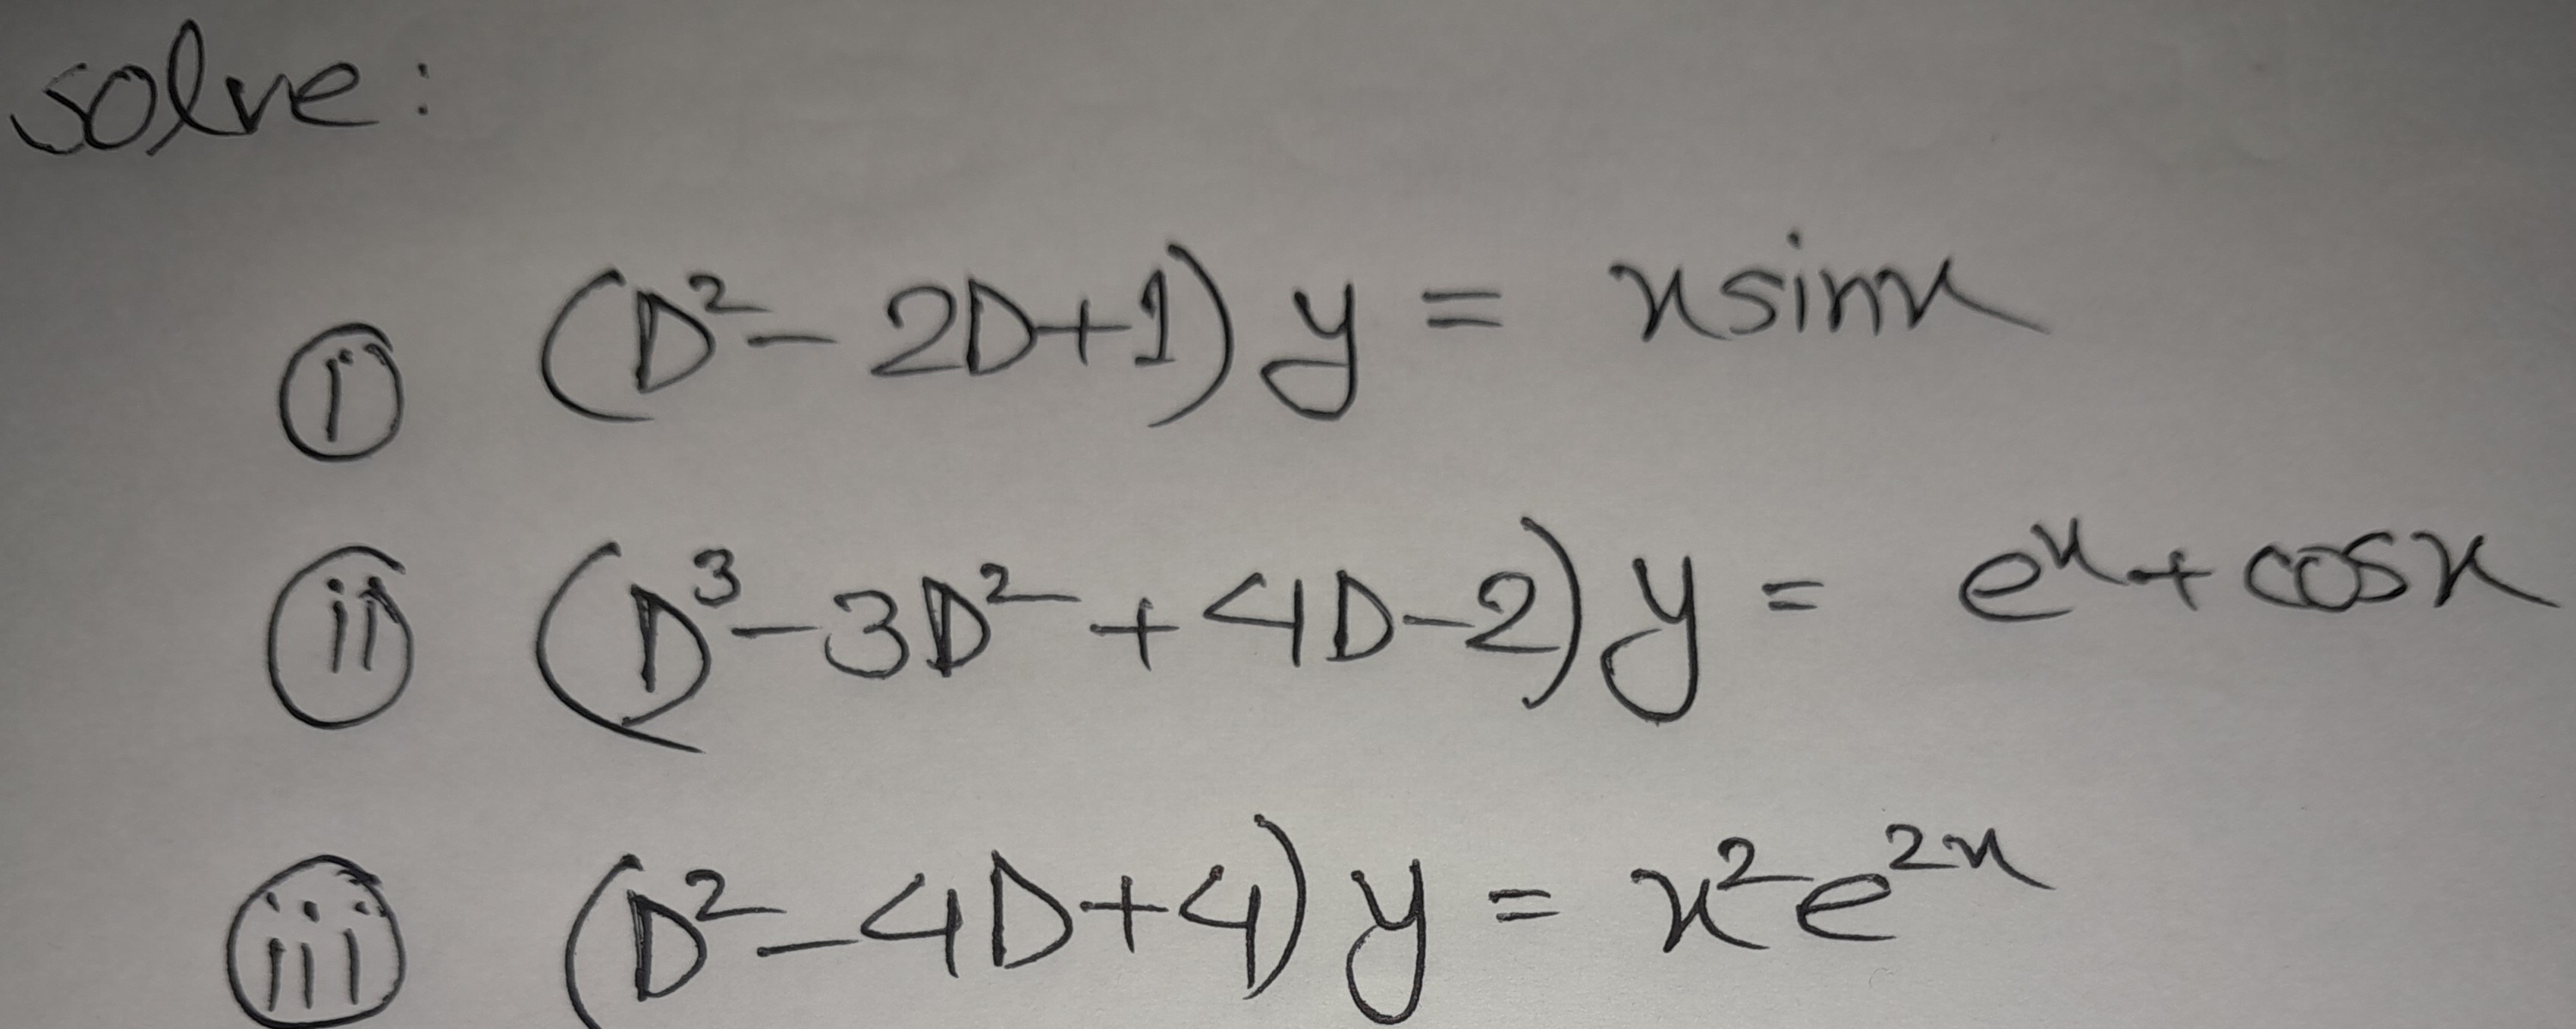 solve:
(i) (D²-2D+1)y = xsinx
(ii) (D³-3D²+4D-2)y = eˣ+cosx
(iii) (D²-4D+4)y = x²e²ˣ